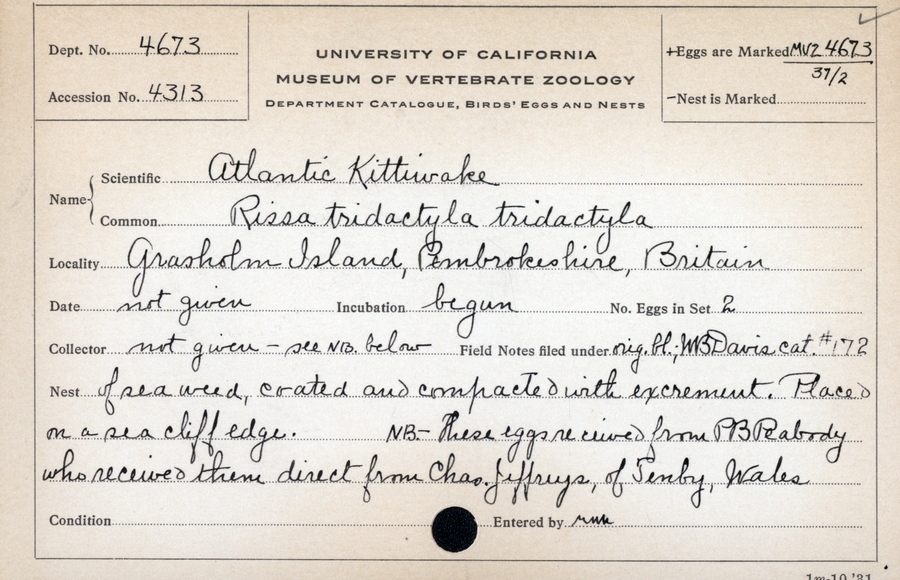 Dept. No. 4673
Accession No. 4313
UNIVERSITY OF CALIFORNIA
MUSEUM OF VERTEBRATE ZOOLOGY
DEPARTMENT CATALOGUE, BIRDS' EGGS AND NESTS
+Eggs are Marked MVZ 4673
37/2
-Nest is Marked
Name { Scientific Atlantic Kittiwake
Common Rissa tridactyla tridactyla
Locality Grasholm Island, Pembrokeshire, Britain
Date not given Incubation begun No. Eggs in Set 2
Collector not given - see NB. below Field Notes filed under orig. bl.; WBDavis cat. #172
Nest of sea weed, coated and compacted with excrement. Placed
on a sea cliff edge. NB- These eggs received from PB Peabody
who received them direct from Chas. Jeffreys, of Tenby, Wales
Condition Entered by
1m-10,'31